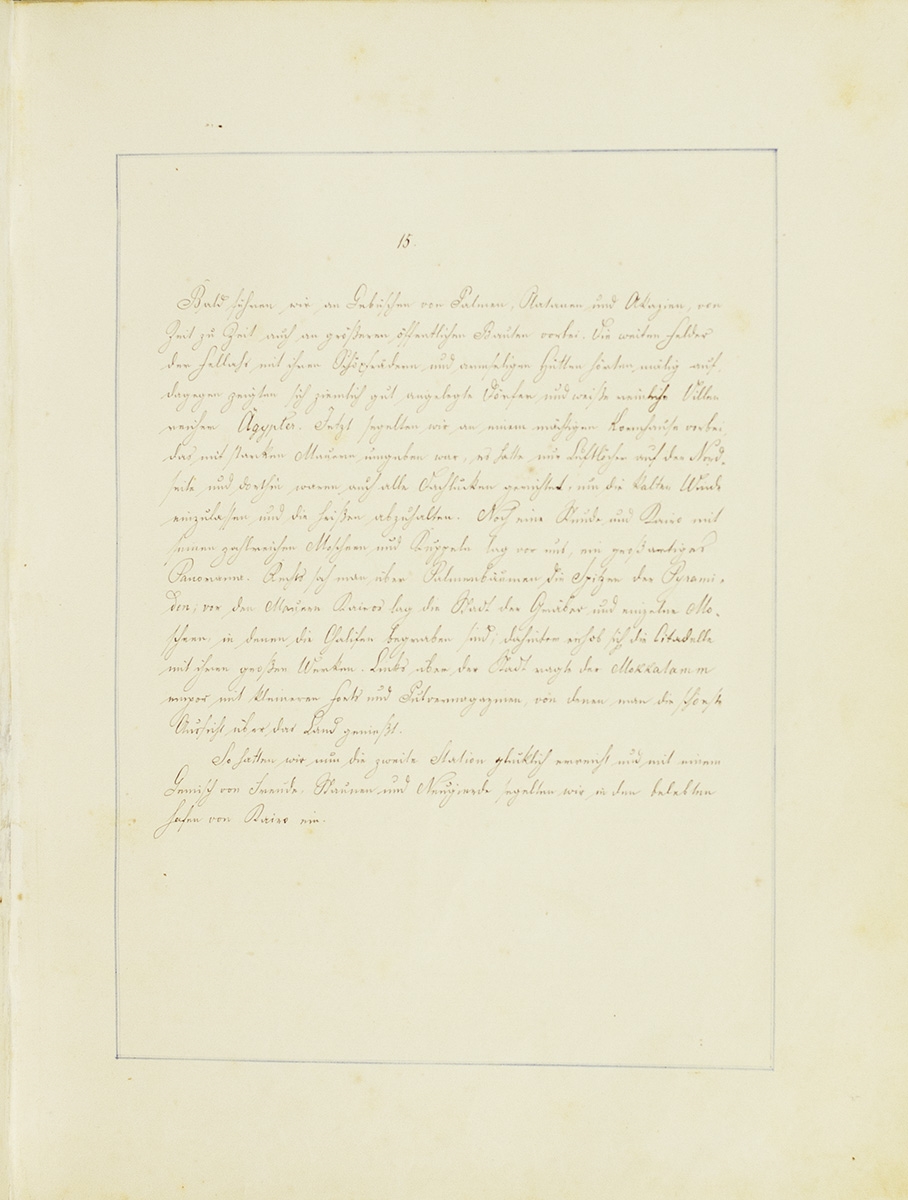 15.
Bald fuhren wir an Gebüschen von Palmen, Platanen und Akazien, von
Zeit zu Zeit auch an größeren öffentlichen Bauten vorbei. Die weiten Felder
der Fellahs mit ihren Schöpfrädern und armseligen Hütten hörten mälig auf,
dagegen zeigten sich ziemlich gut angelegte Dörfer und weiße reinliche Villen
reicher Ägypter. Jetzt segelten wir an einem mächtigen Kornhause vorbei
das mit starken Mauern umgeben war, es hatte nur Luftlöcher auf der Nord-
seite und dorthin waren auch alle Dachlucken gerichtet, um die kalten Winde
einzulassen und die heißen abzuhalten. Noch eine Stunde und Kairo mit
seinen zahlreichen Moscheen und Kuppeln lag vor uns, ein großartiges
Panorama. Rechts sah man über Palmenbäumen die Spitzen der Pyrami-
den; vor den Mauern Kairos lag die Stadt der Gräber und einzelne Mo-
scheen, in denen die Chalifen begraben sind; dahinter erhob sich die Citadelle
mit ihren großen Werken. Links über der Stadt ragte der Mokkatamm
empor mit kleineren Forts und Pulvermagazinen, von denen man die schönste
Aussicht über das Land genießt.
So hatten wir nun die zweite Station glücklich erreicht und mit einem
Gemisch von Freude, Staunen und Neugierde segelten wir in den belebten
Hafen von Kairo ein.